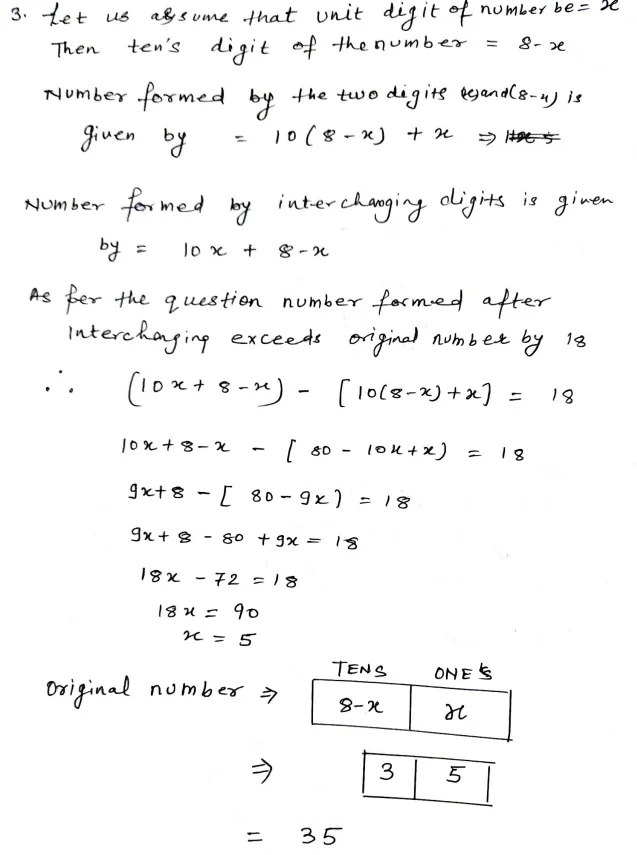 3. Let us assume that unit digit of number be = x
Then ten's digit of the number = 8-x
Number formed by the two digits (x) and (8-x) is
given by = 10(8-x) + x ⇒
Number formed by interchanging digits is given
by = 10x + 8-x
As per the question number formed after
Interchanging exceeds original number by 18
∴ (10x + 8-x) - [10(8-x)+x] = 18
10x + 8-x - [80 - 10x+x) = 18
9x+8 - [80-9x) = 18
9x+8-80+9x = 18
18x - 72 = 18
18x = 90
x = 5
TENS ONE'S
Original number ⇒ 8-x x
⇒ 3 5
= 35